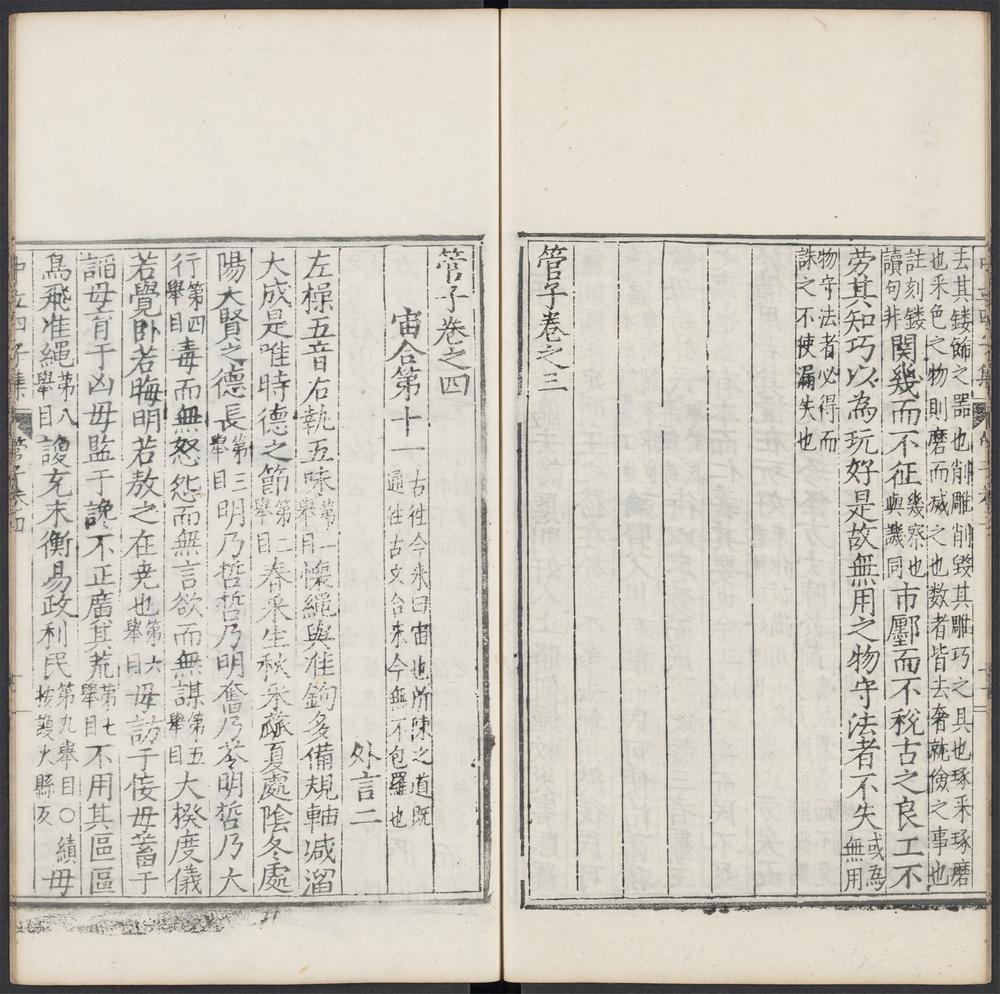 去其鏤飾之器也削雕削毀其雕巧之具也琢釆琢磨
也釆色之物則磨而滅之也数者皆去奢就儉之事也
註刻鏤
讀句非關幾而不征幾察也
與譏同市㕓而不稅古之良工不
劳其知巧以為玩好是故無用之物守法者不失或為
無用
物守法者必得而
誅之不使漏失也
管子卷之三
管子卷之四
宙合第十一古徃今來曰宙也所陳之道既
通徃古文合來今無不包羅也
外言二
左操五音右執五味第一
舉目懷繩與准鉤多備規軸減溜
大成是唯時德之節第二
舉目春采生秋采蓏夏處陰冬處
陽大賢之德長第三
舉目明乃哲哲乃明奮乃苓明哲乃大
行第四
舉目毒而無怒怨而無言欲而無謀第五
舉目大揆度儀
若覺卧若晦明若敖之在尭也第六
舉目毋訪于佞毋蓄于
謟毋育于凶毋監于讒不正廣其荒第七
舉目不用其區區
鳥飛准繩第八
舉目謏充末衡易政利民第九舉目○績毋
按謏火縣反
中立四子集 管子卷四